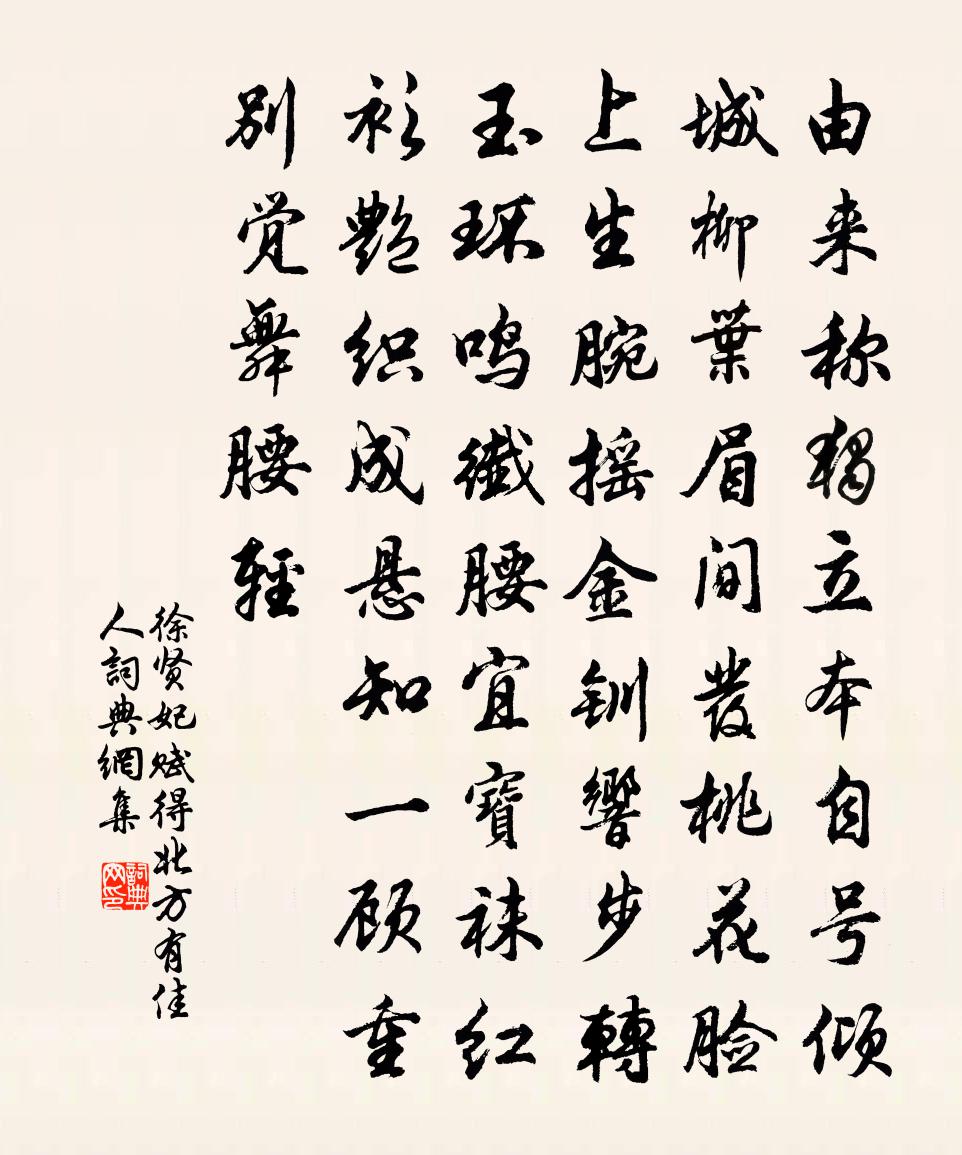 由来称獨立本自号倾
城柳葉眉间發桃花脸
上生腕摇金钏響步轉
玉环鸣纖腰宜寶袜红
衫艷织成悬知一顾重
别觉舞腰輕
徐贤妃赋得北方有佳
人詞典網集
詞典网印